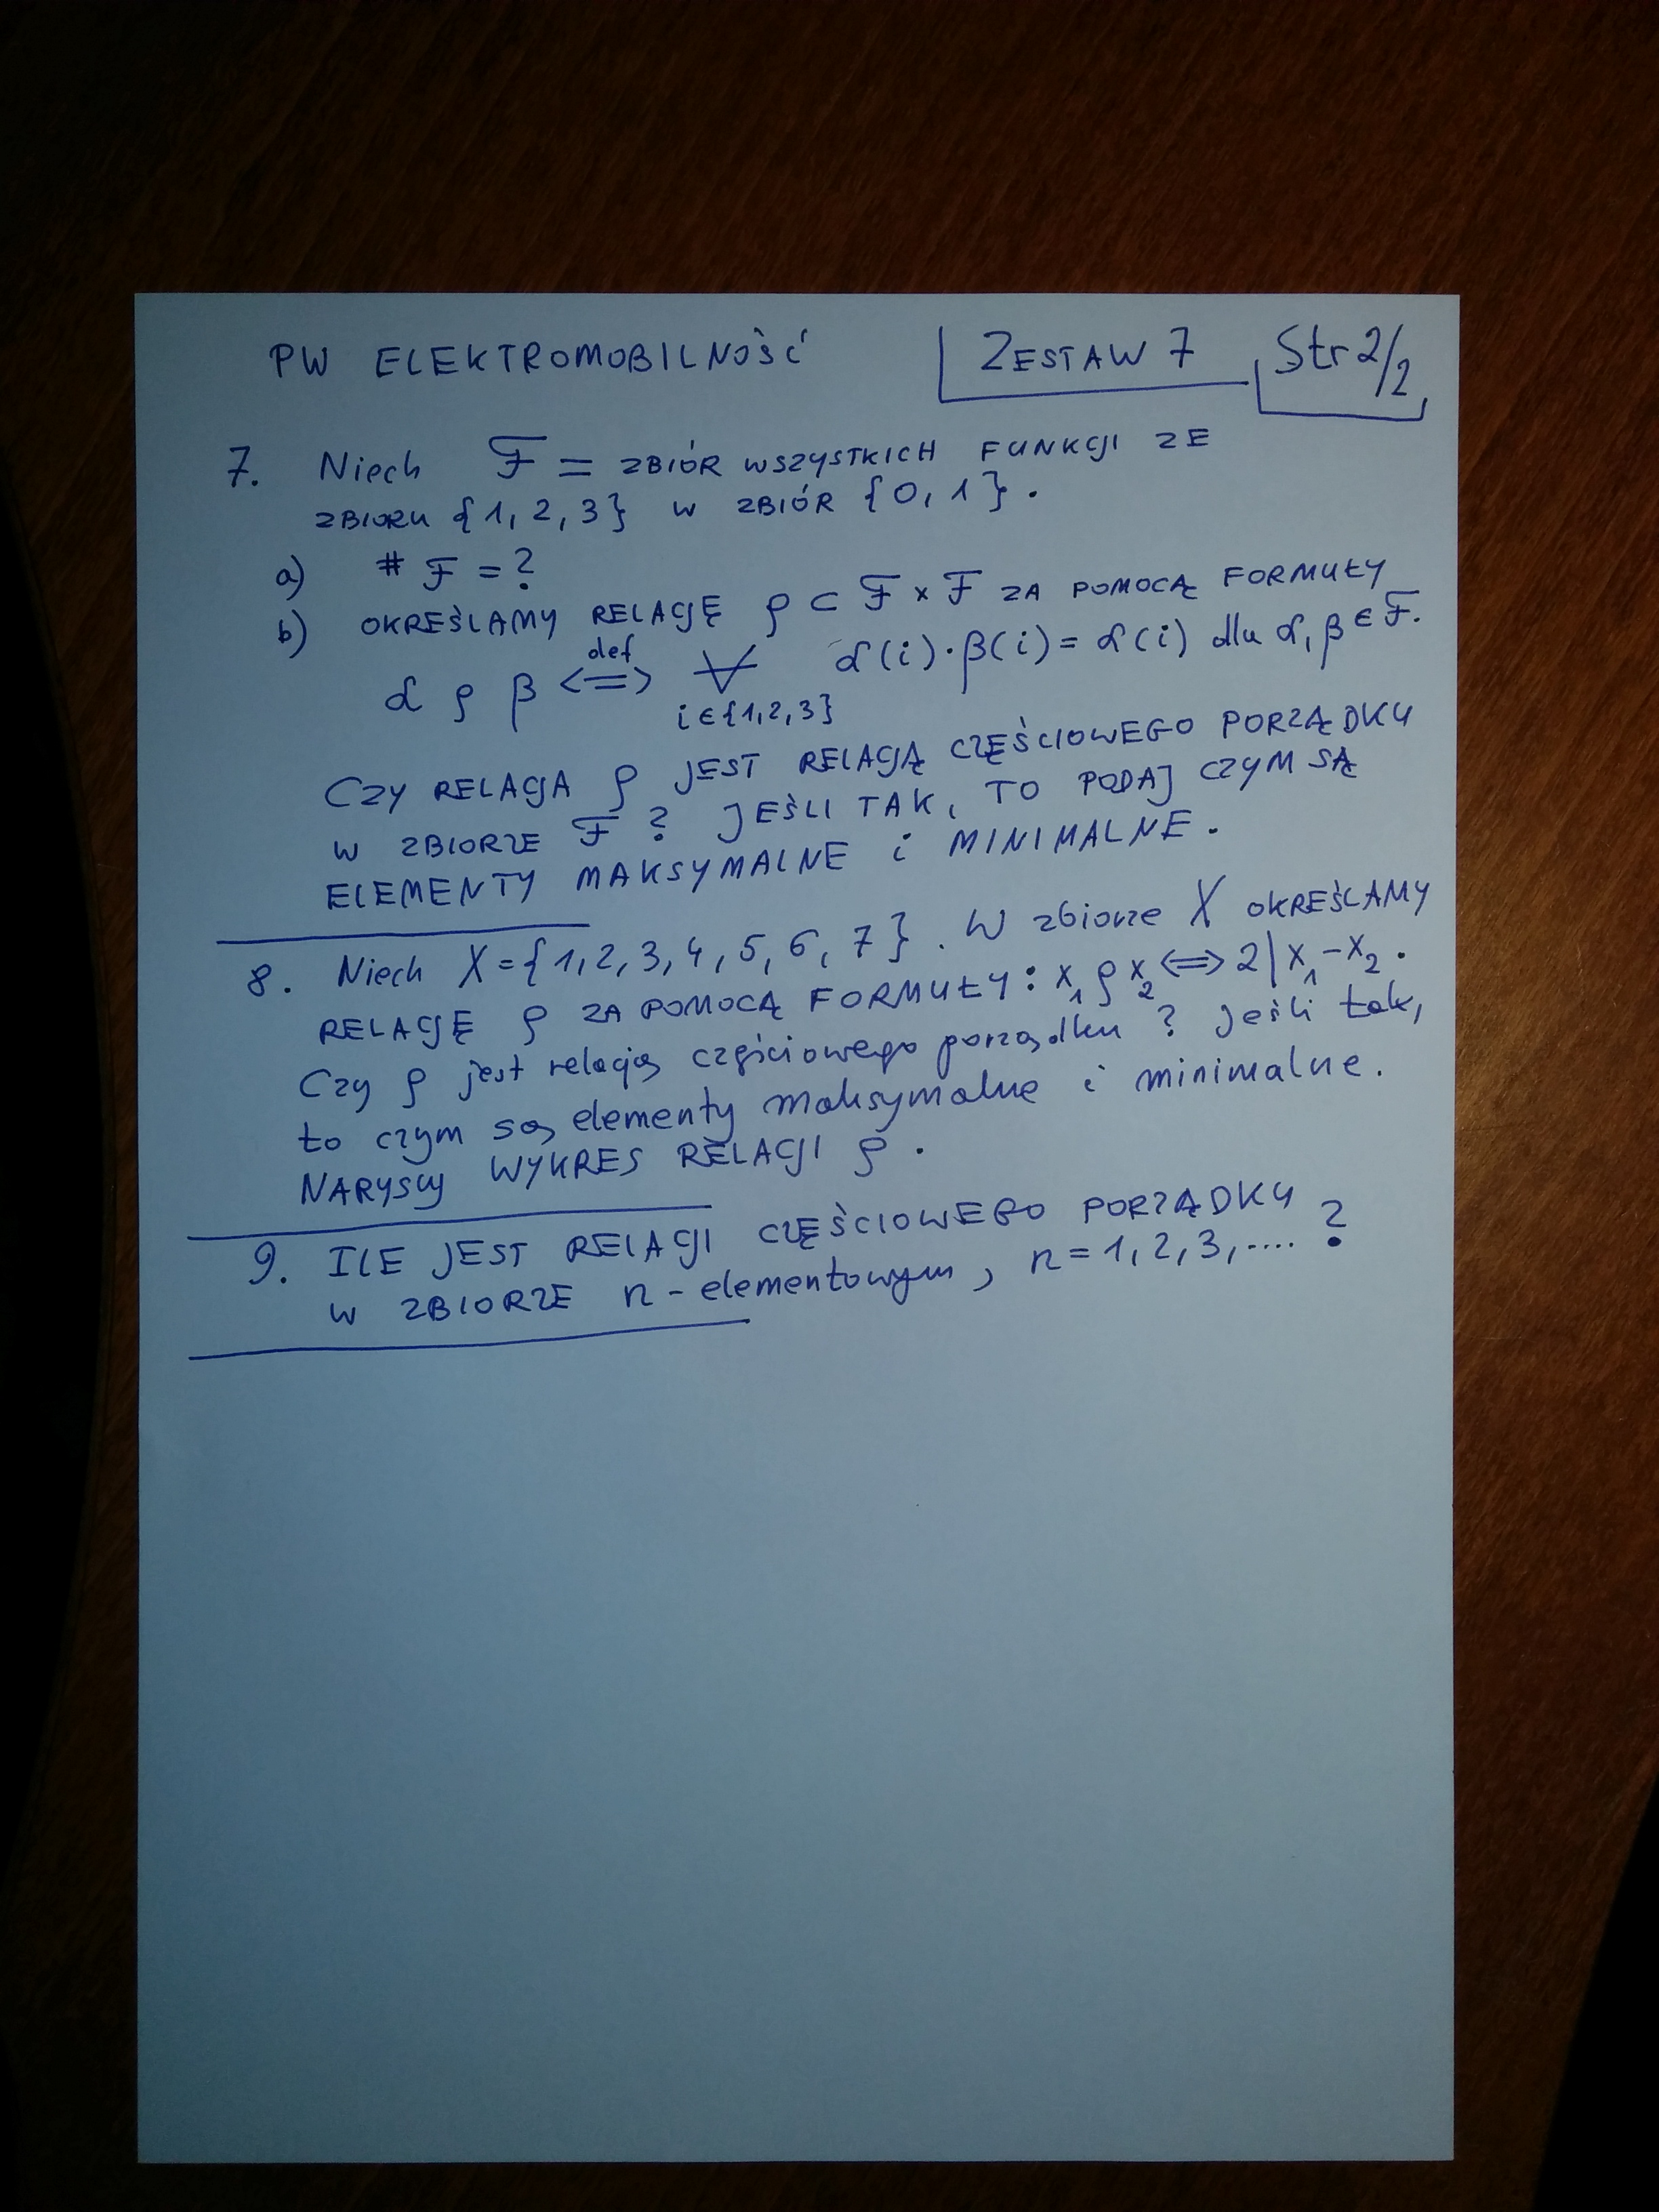 PW ELEKTROMOBILNOŚĆ ZESTAW 7 Str 2/2
7. Niech F = ZBIÓR WSZYSTKICH FUNKCJI ZE
ZBIORU {1, 2, 3} W ZBIÓR {0, 1}.
a) # F = ?
b) OKREŚLAMY RELACJĘ ρ ⊂ F × F ZA POMOCĄ FORMUŁY
α ρ β <=> def ∀ i ∈ {1,2,3} α(i)·β(i) = α(i) dla α, β ∈ F.
CZY RELACJA ρ JEST RELACJĄ CZĘŚCIOWEGO PORZĄDKU
W ZBIORZE F ? JEŚLI TAK, TO PODAJ CZYM SĄ
ELEMENTY MAKSYMALNE i MINIMALNE.
8. Niech X = {1, 2, 3, 4, 5, 6, 7}. W zbiorze X OKREŚLAMY
RELACJĘ ρ ZA POMOCĄ FORMUŁY: x₁ ρ x₂ <=> 2 | x₁ - x₂.
Czy ρ jest relacją częściowego porządku ? Jeśli tak,
to czym są elementy maksymalne i minimalne.
NARYSUJ WYKRES RELACJI ρ.
9. ILE JEST RELACJI CZĘŚCIOWEGO PORZĄDKU
W ZBIORZE n - elementowym, n = 1, 2, 3, .... ?